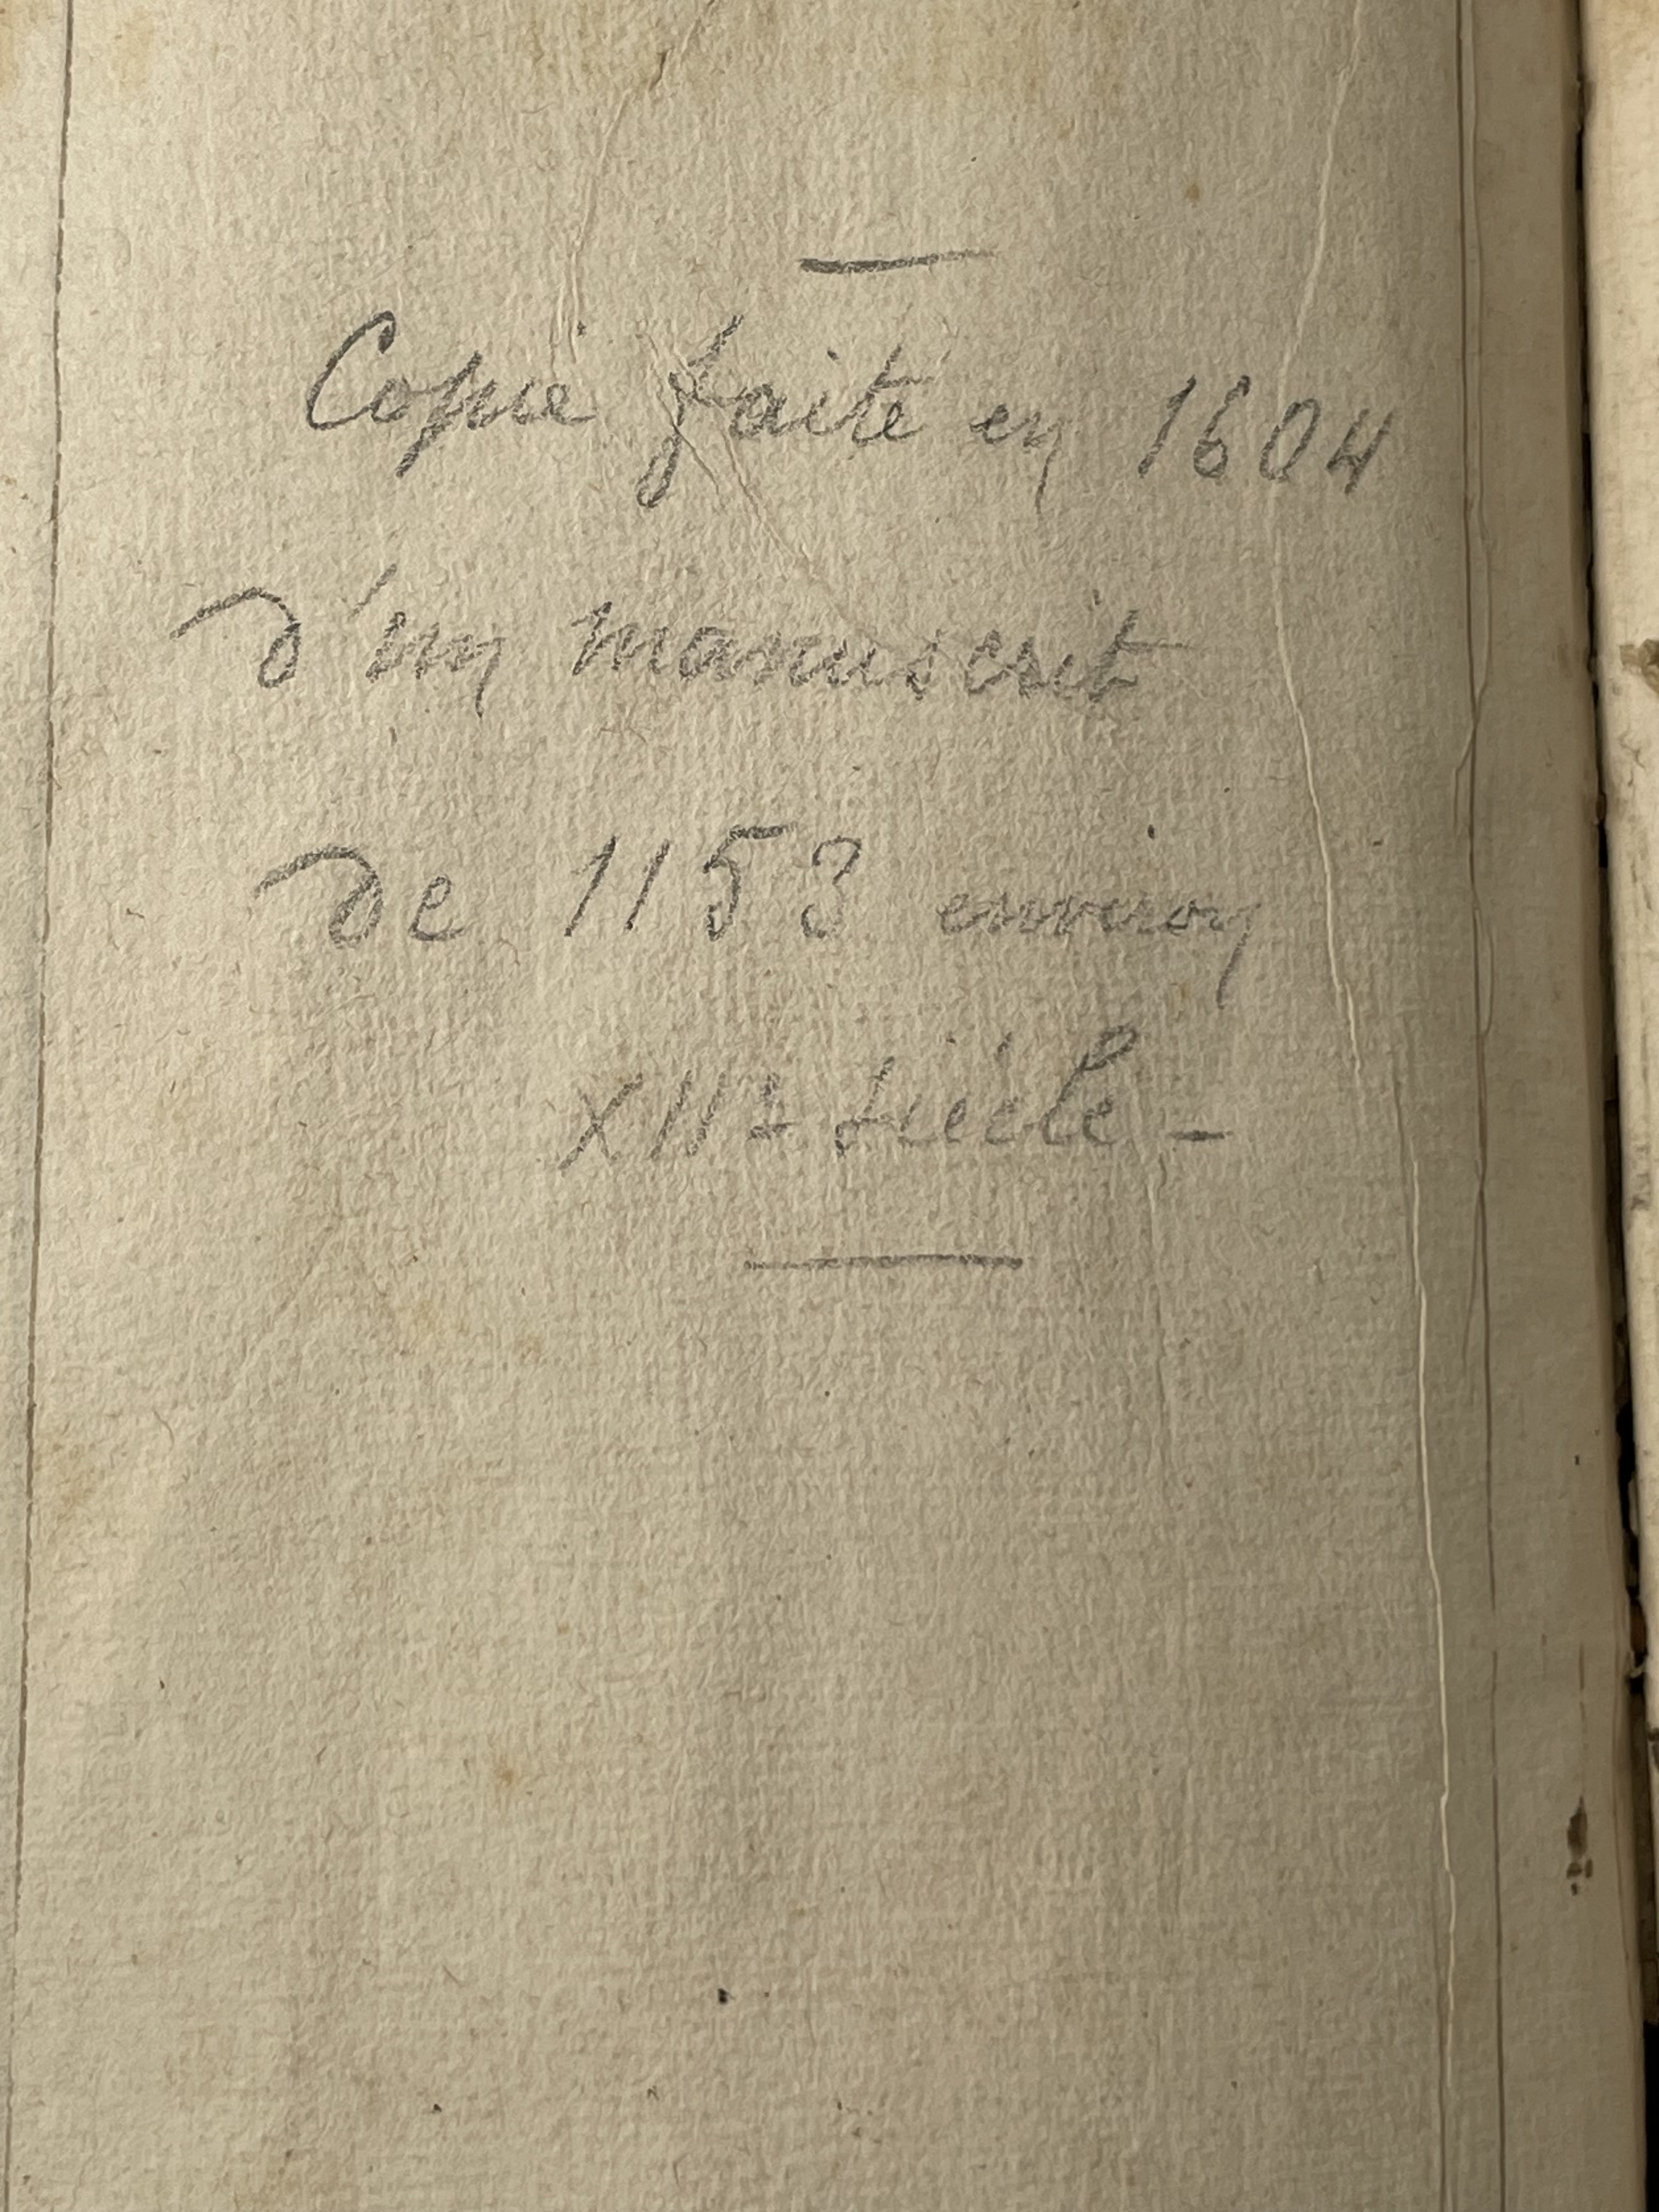 Copie faite en 1604
d'un manuscrit
de 1153 environ
XIIe siècle -